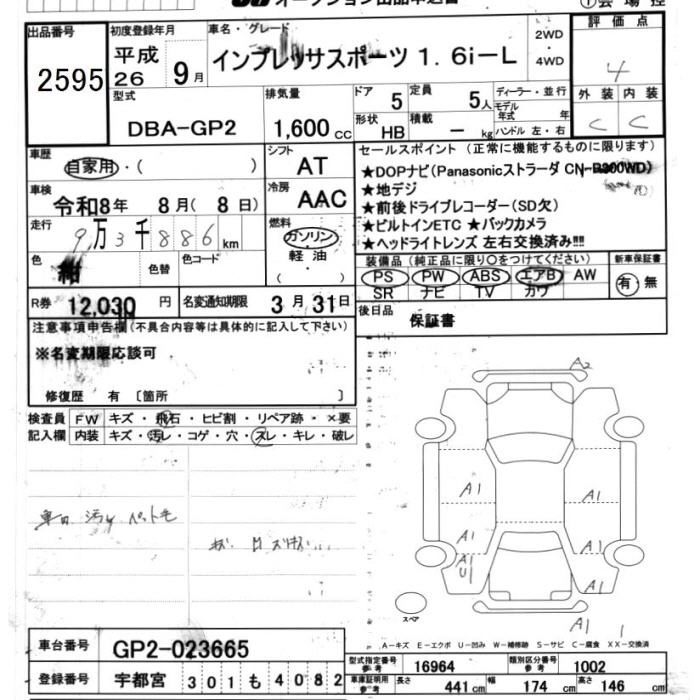 出品番号
2595
初度登録年月
平成
26 9月
車名・グレード
インプレッサスポーツ 1.6i-L
2WD
・
4WD
評価点
4
型式
DBA-GP2
排気量
1,600 cc
ドア 5
定員 5人
ディーラー・並行
モデル年式 年
形状 HB
積載 - kg
ハンドル 左・右
外装 内装
C C
車歴
自家用・( )
シフト
AT
車検
令和8年 8月(8日)
冷房
AAC
走行
9万3千886km
燃料
ガソリン
軽油
( )
色
紺
色替
色コード
R券 12,030円
名変通知期限 3月31日
セールスポイント (正常に機能するものに限ります)
★DOPナビ(Panasonicストラーダ CN-R300WD)
★地デジ
★前後ドライブレコーダー(SD欠)
★ビルトインETC ★バックカメラ
★ヘッドライトレンズ 左右交換済み!!!
装備品 (純正品に限り○をつけてください)
PS PW ABS エアB AW
SR ナビ TV カワ
新車保証書
有・無
後日品
保証書
注意事項申告欄 (不具合内容等は具体的に記入して下さい)
※名変期限応談可
修復歴 有 〔箇所 〕
検査員
記入欄
FW キズ・飛石・ヒビ割・リペア跡・×要
内装 キズ・汚レ・コゲ・穴・スレ・キレ・破レ
車内 汚れ ペット毛
A2
A1
A1
A1
A1
A1
U1
A1
A1
スペア
A-キズ E-エクボ U-凹み W-補修跡 S-サビ C-腐食 XX-交換済
車台番号 GP2-023665
登録番号 宇都宮 301 も 4082
型式指定番号 参考 16964
類別区分番号 参考 1002
車庫証明用 参考 長さ 441cm 幅 174cm 高さ 146cm